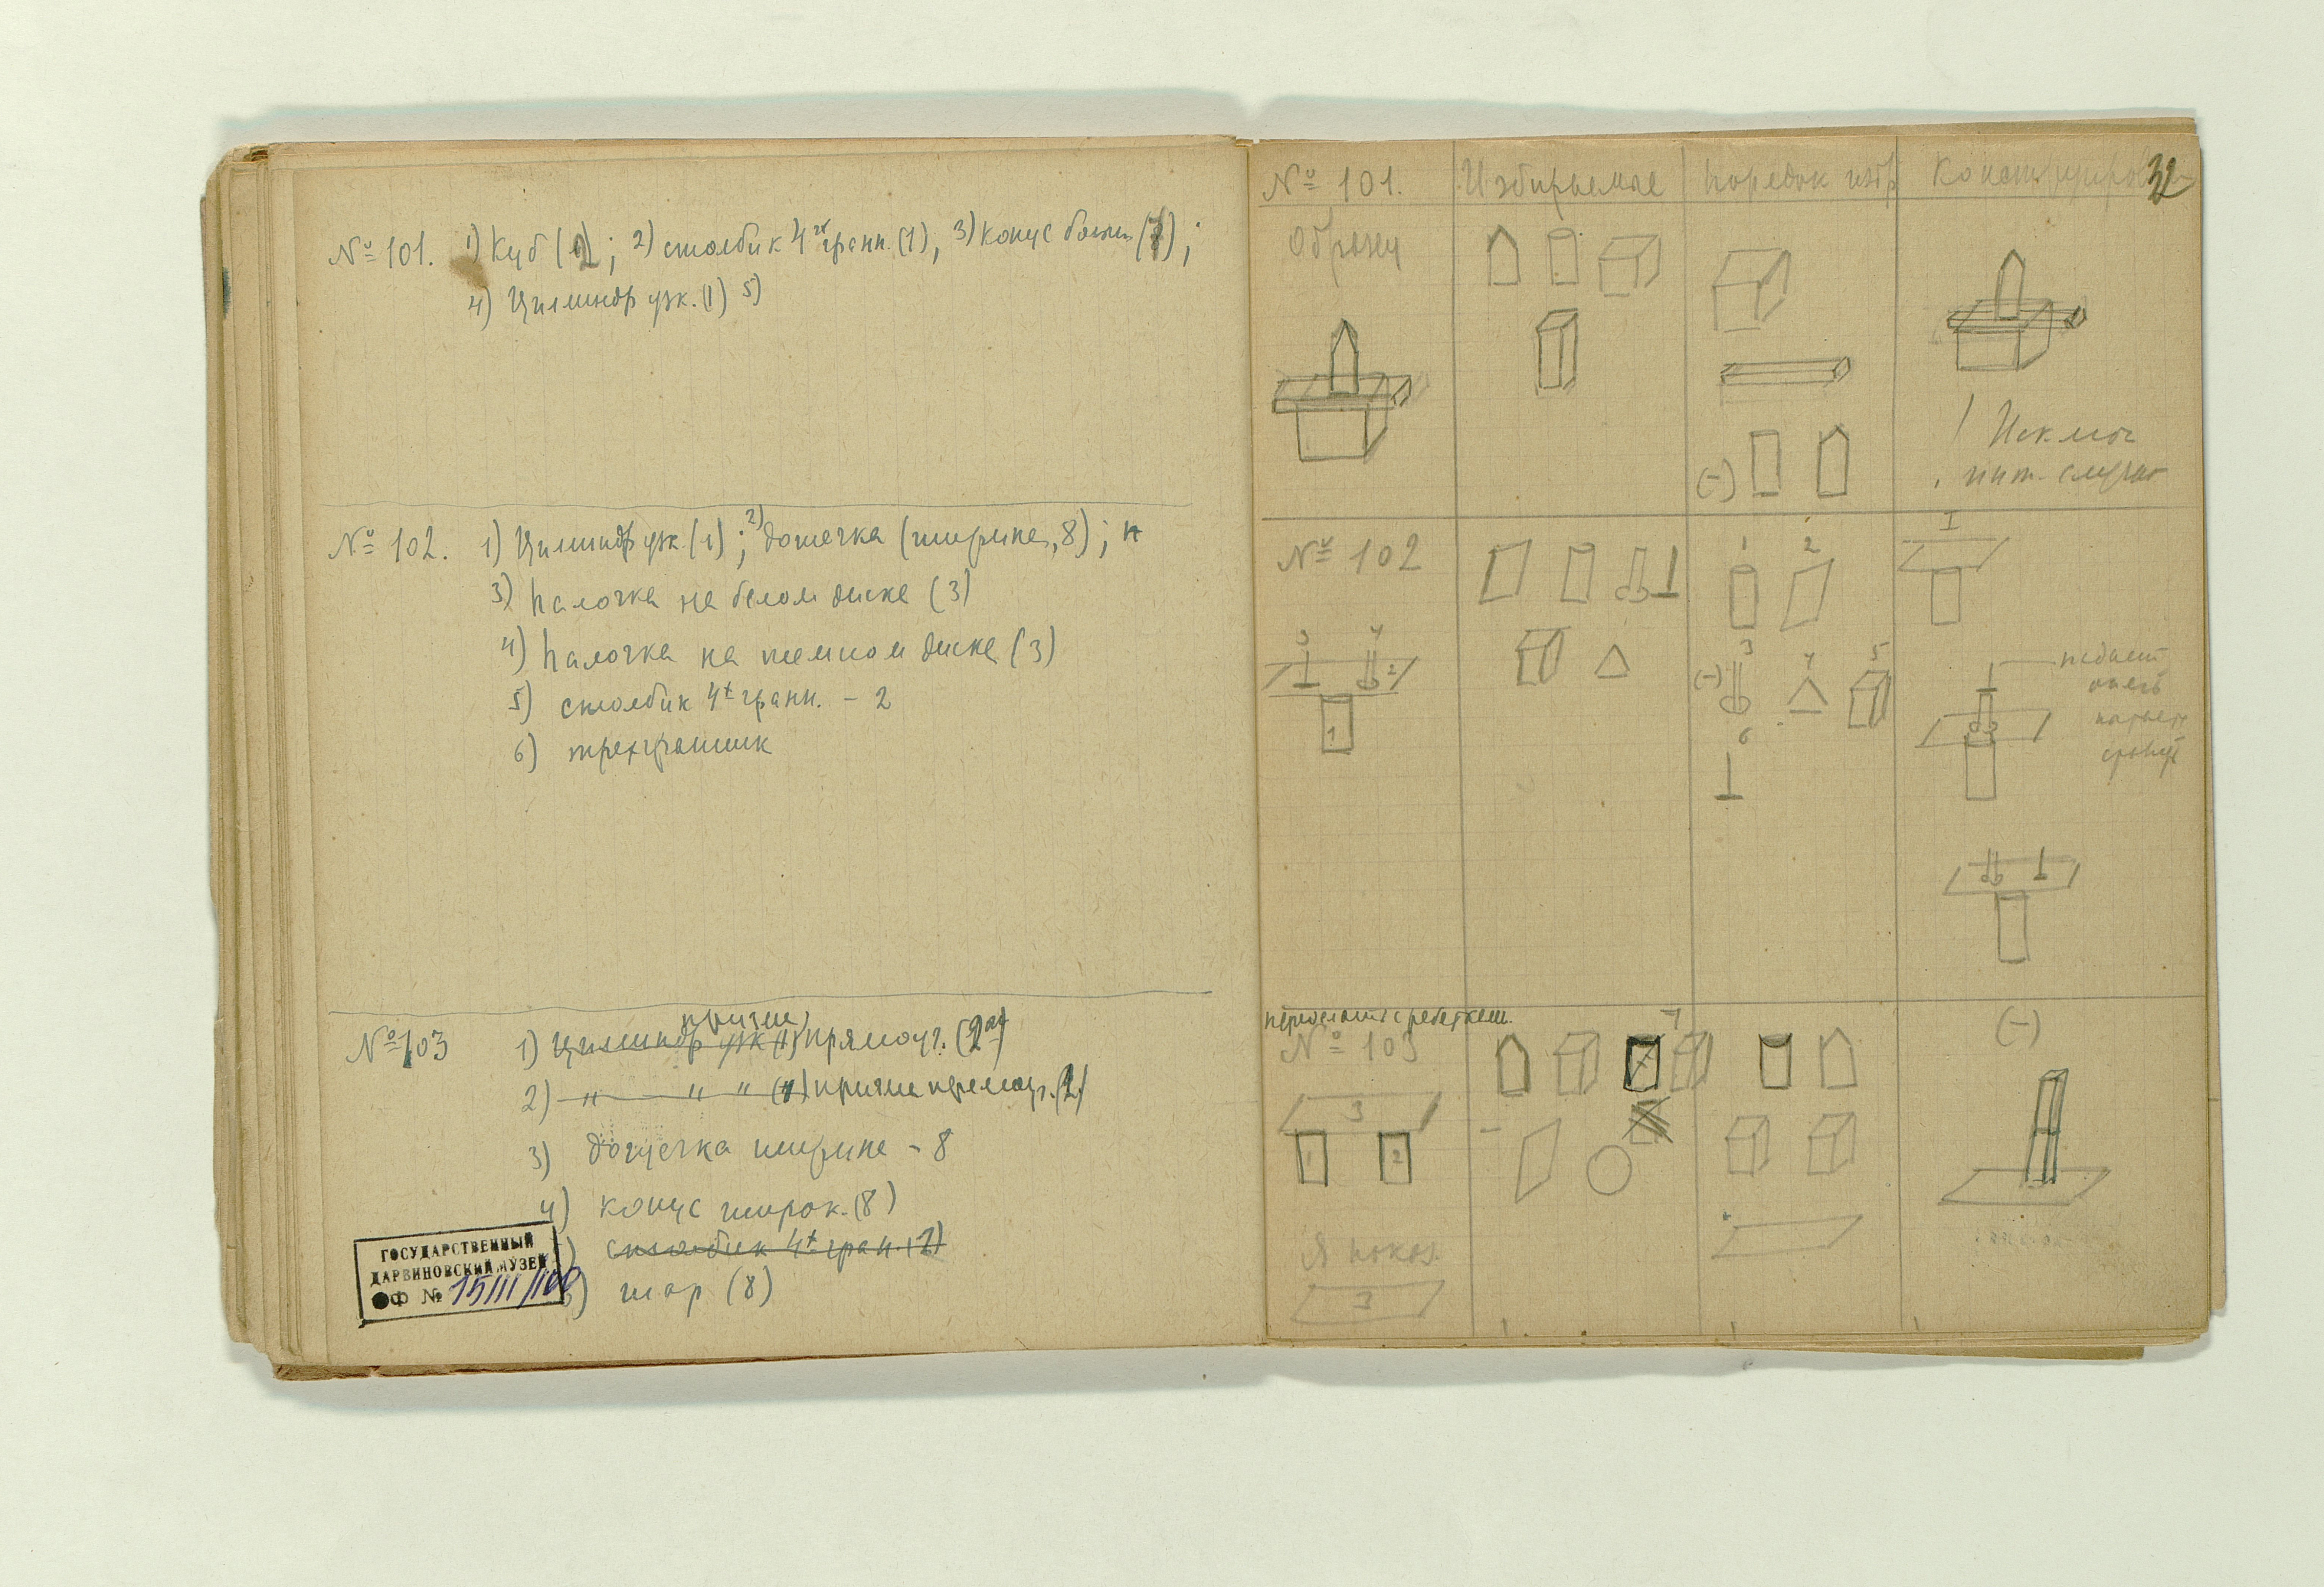 № 101. 1) Куб (2); 2) столбик 4х гранн. (1), 3) конус больш (1);
4) Цилиндр узк. (1) 5)
№ 102. 1) Цилиндр узк. (1); 2) дощечка (широке, 8); н
3) палочка на белом диске (3)
4) палочка на темном диске (3)
5) столбик 4х гранн. - 2
6) трехгранник
№ 103 1) Цилиндр узк (1) призма прямоуг. (2)
2) " " " (1) призма прямоуг. (2)
3) дощечка широке - 8
4) конус широк. (8)
5) столбик 4х гран. (2)
6) шар (8)
ГОСУДАРСТВЕННЫЙ
ДАРВИНОВСКИЙ МУЗЕЙ
ОФ №
№ 101. Избираемые порядок избр Конструиров 32
Образец
(-)
! Исключ
инт. случай
№ 102
1 2
I
3 4 2 1
(-) 3 4 5
6
опять
№ 103
(-)
3
1 2
Я показ.
3